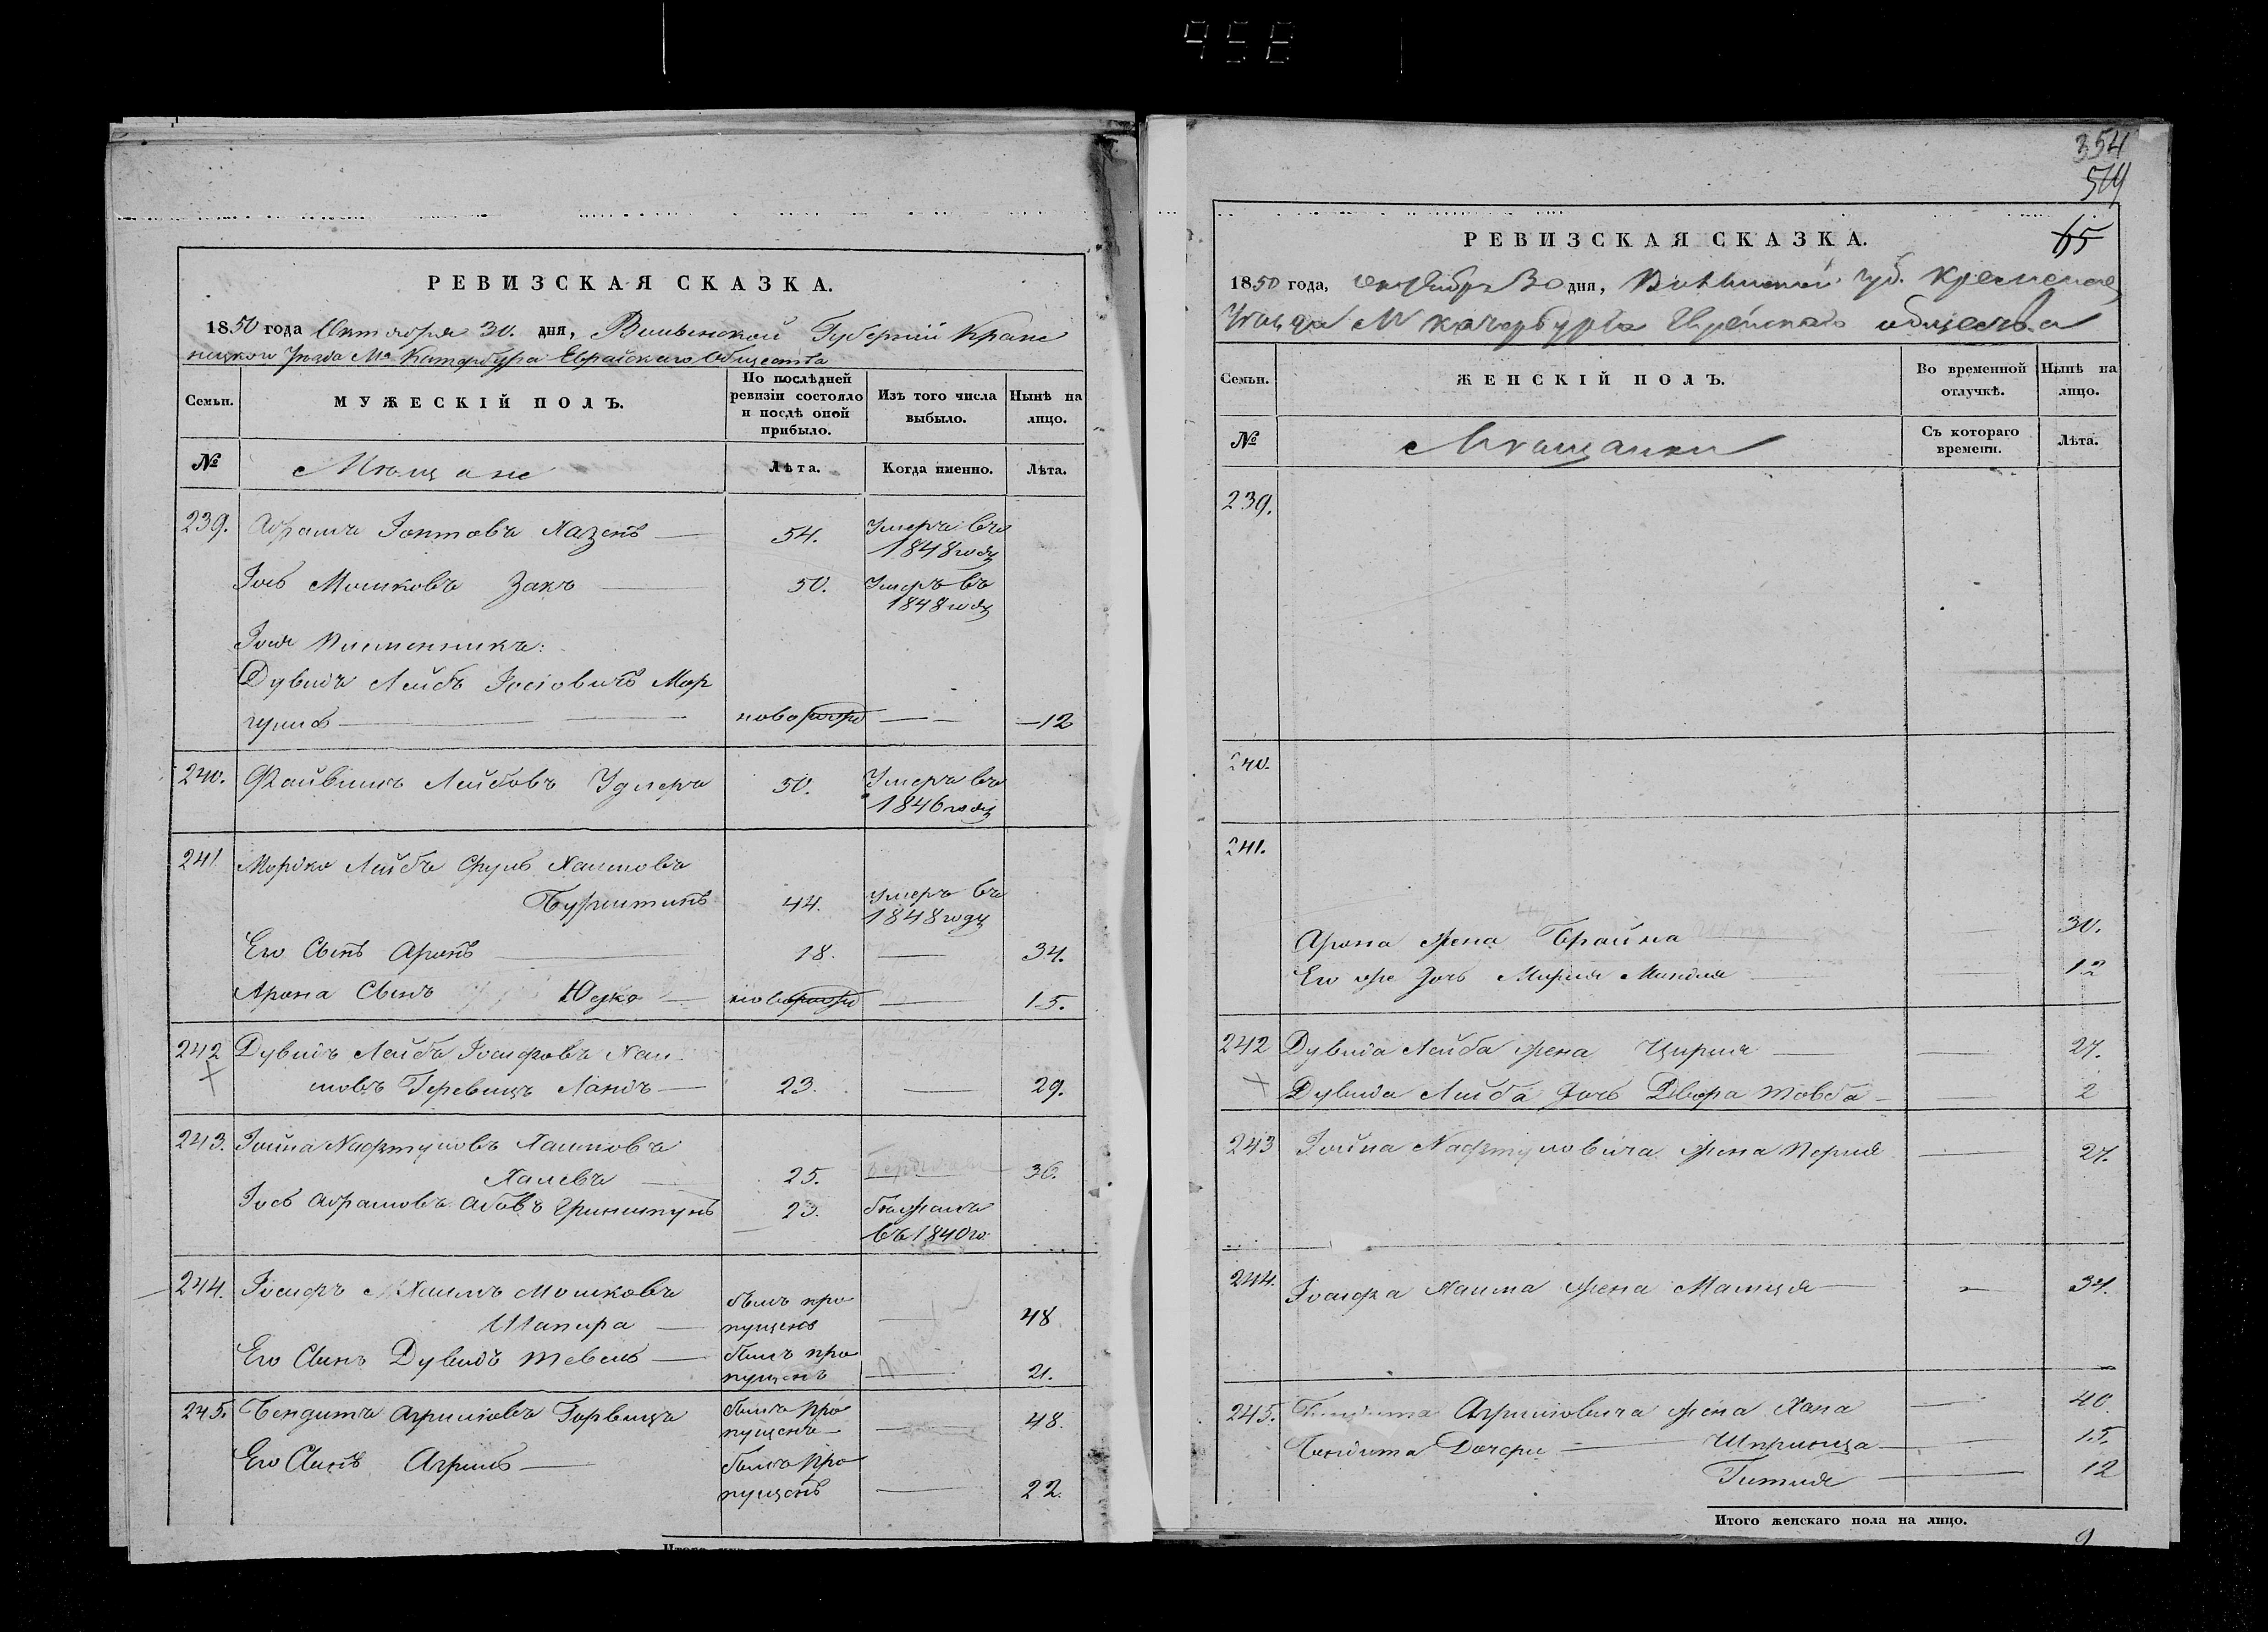 958
РЕВИЗСКАЯ СКАЗКА.
1850 года Октября 30. дня, Волынской Губерніи Креме
нецкого Уезда Мa Катербурга Еврейскаго Общества
Семьи.
МУЖЕСКІЙ ПОЛЪ.
По послѣдней ревизіи состояло и послѣ оной прибыло.
Изъ того числа выбыло.
Нынѣ на лицо.
№
Мещане
Лѣта.
Когда именно.
Лѣта.
239. Абрамъ Іонтовъ Хазенъ 54. Умеръ въ
1848 году
Іось Мошковъ Закъ 50. Умеръ въ
1848 году
Дувидъ Лейбъ Іосіовичъ Мар
гулисъ ново 12
240. Файвишъ Лейбовъ 50. Умеръ въ
1846 году
241 Мордко Лейбъ Сруль Хаимовъ
44. умеръ въ
1848 году
Его Сынъ Аронъ 18. 34.
Арона Сынъ Юдко 15.
242 Дувидъ Лейбъ Іосифовъ Хаи
мовъ Геревицъ Ландъ 23. 29.
243. Іойна Нафтуловъ Хаимовъ
Халевъ 25. 36.
Іось Абрамовъ Абовъ Гринштунъ 23. бѣжалъ
въ 1840 го
244. Іосифъ Хаимъ Мошковъ
Шапира былъ про
пущенъ 48
Его Сынъ Дувидъ Тевель былъ про
пущенъ 21.
245. Бендитъ Аврумовъ Горвицъ былъ про
пущенъ 48.
Его Сынъ Аврумъ былъ про
пущенъ 22.
354
514
65
РЕВИЗСКАЯ СКАЗКА.
1850 года, октября 30 дня, Волынской губ. Кременец
Уезда М Катербурга Еврейскаго общества
Семьи.
ЖЕНСКІЙ ПОЛЪ.
Во временной отлучкѣ.
Нынѣ на лицо.
№
Мещанки
Съ котораго времени.
Лѣта.
239.
240.
241.
Арона жена Брайна 30.
Его же дочь Мирля Миндля 12
242 Дувида Лейба жена Цирля 27.
Дувида Лейба дочь Двора Товба 2
243 Іойна Нафтуловича жена Перля 27.
244. Іосифа Хаима жена Матля 34.
245. Бендита Аврумовича жена Хана 40.
Бендита Дочери Шпринца 15.
Гитля 12
Итого женскаго пола на лицо.
9